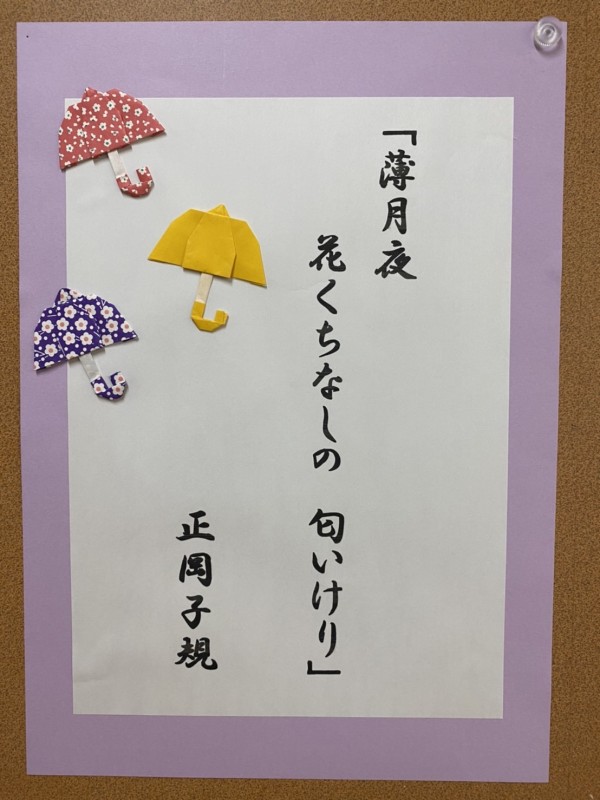 「薄月夜
花くちなしの　匂いけり」
正岡子規